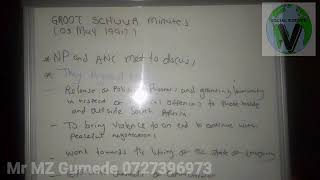 GROOT SCHUUR Minutes
(03 May 1991)
SOCIAL SCIENCE
V
* NP and ANC met to discuss
* They
- Release of Political Prisoners and granting immunity
in respect of offences to those inside
and outside South Africa
- To bring violence to an end to continue with
peaceful negotiations
- work towards the lifting of the state of emergency
Mr MZ Gumede 0727396973